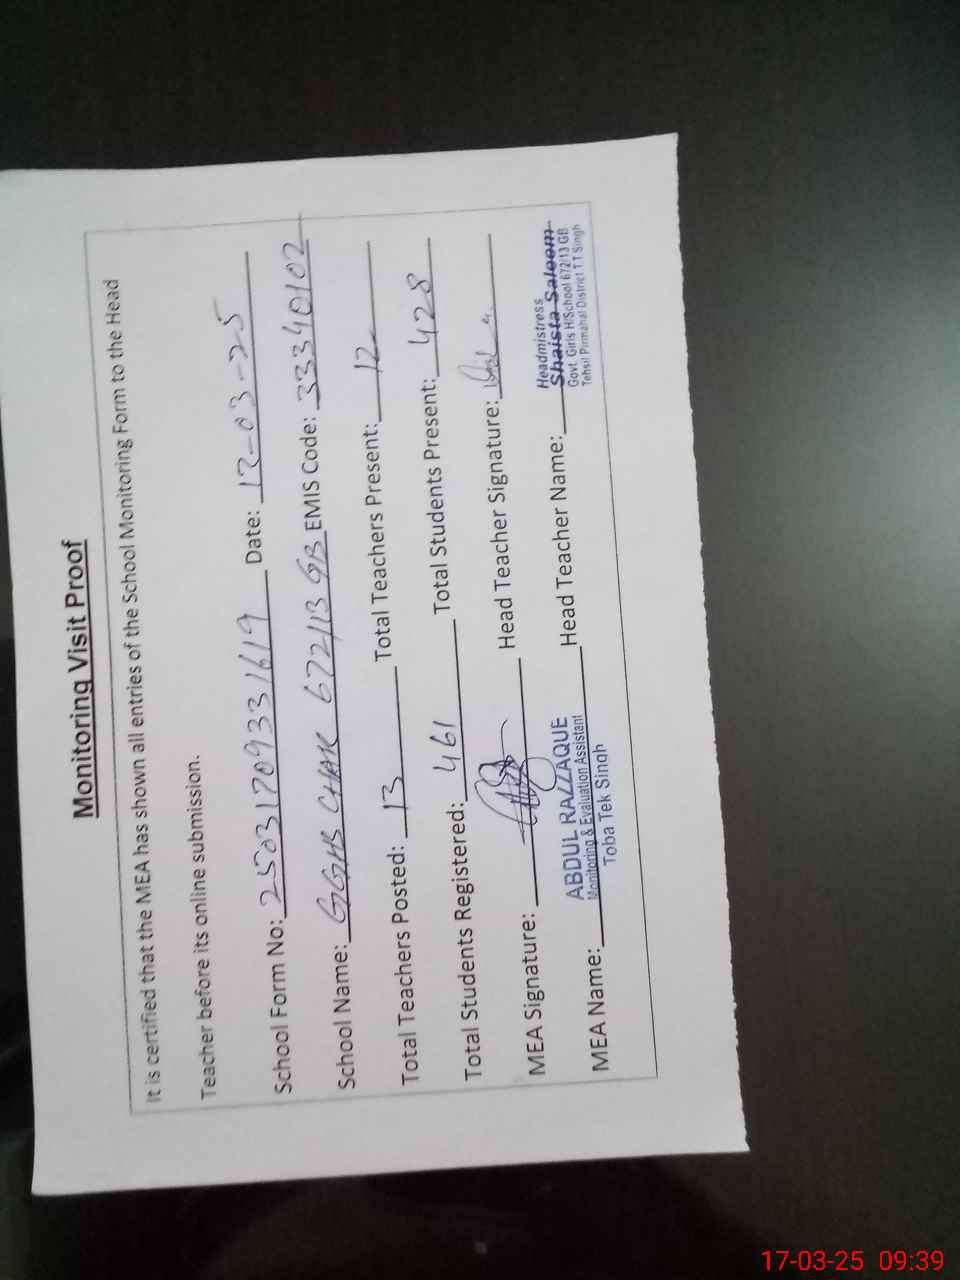 Monitoring Visit Proof
It is certified that the MEA has shown all entries of the School Monitoring Form to the Head
Teacher before its online submission.
School Form No: 25031709331619 Date: 17-03-25
School Name: GGHS CHAK 672/13 GB EMIS Code: 33340102
Total Teachers Posted: 13 Total Teachers Present: 12
Total Students Registered: 461 Total Students Present: 428
MEA Signature: Head Teacher Signature:
MEA Name: ABDUL RAZZAQUE Head Teacher Name: Headmistress
Monitoring & Evaluation Assistant Shaista Saleem
Toba Tek Singh Govt. Girls H/School 672/13 GB
Tehsil Pirmahal District T T Singh
17-03-25 09:39